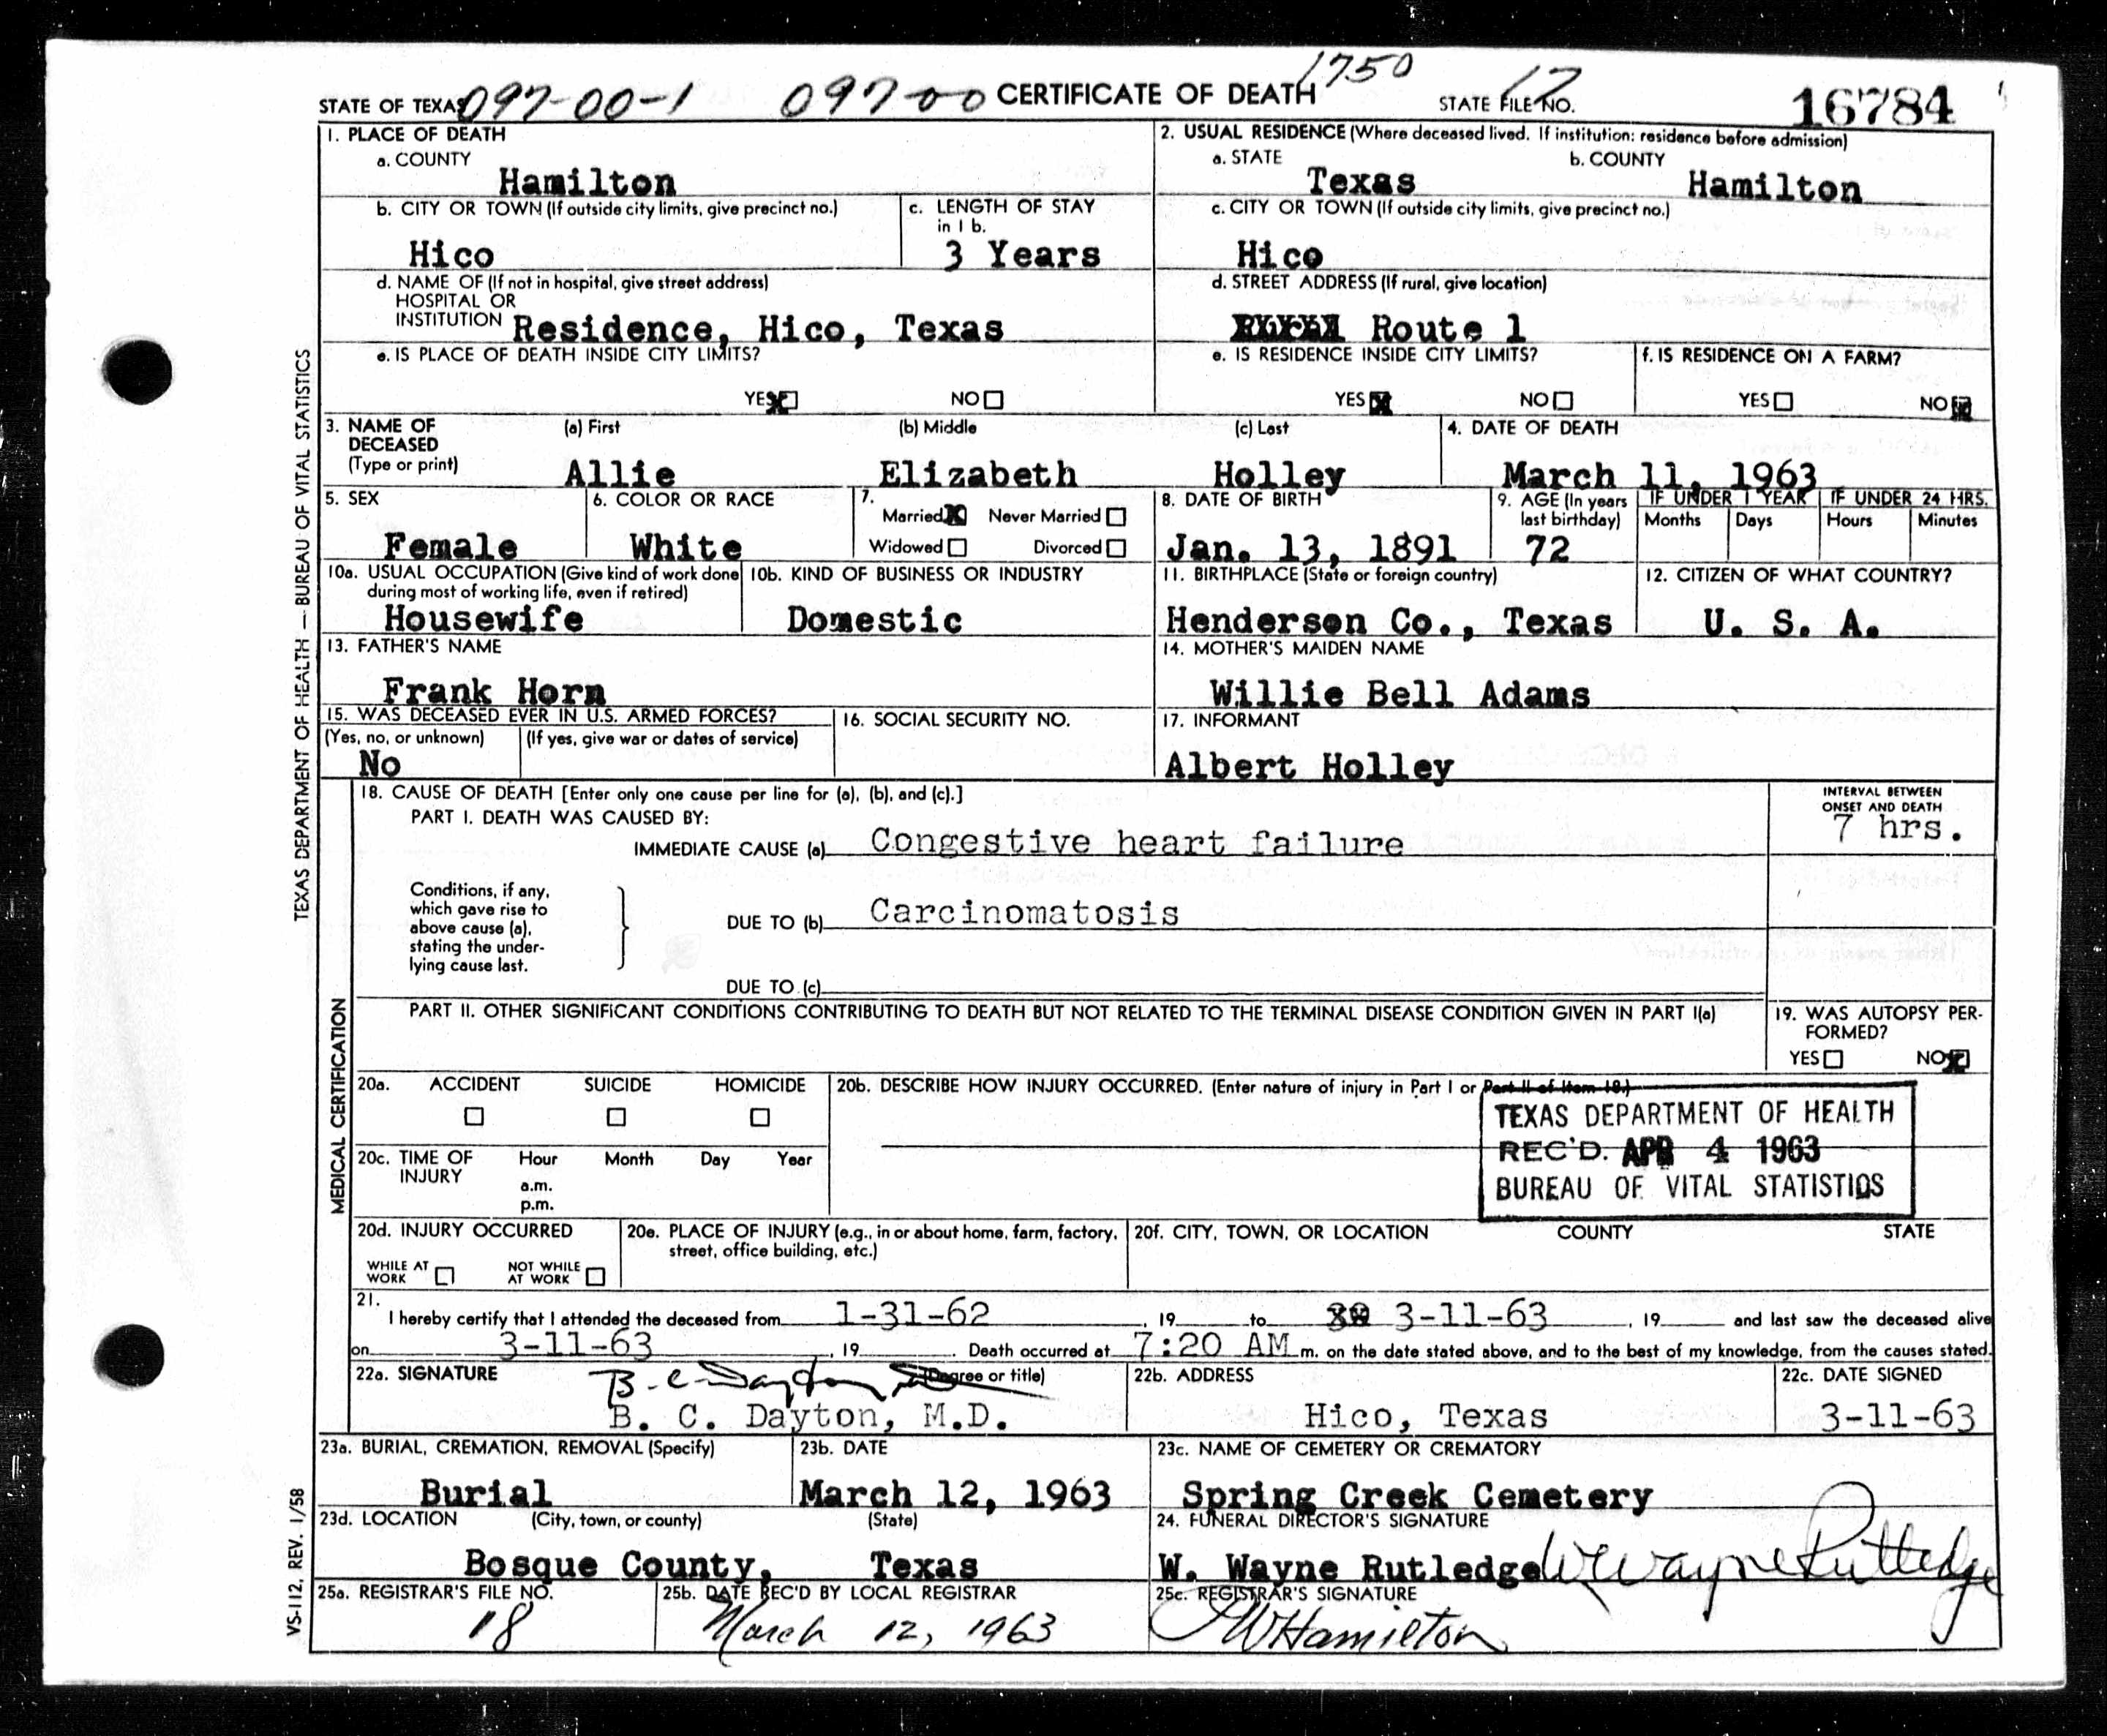 STATE OF TEXAS 097-00-1 097-00 CERTIFICATE OF DEATH 1750 STATE FILE NO. 17 16784
1. PLACE OF DEATH
a. COUNTY
Hamilton
2. USUAL RESIDENCE (Where deceased lived. If institution: residence before admission)
a. STATE b. COUNTY
Texas Hamilton
b. CITY OR TOWN (If outside city limits, give precinct no.)
Hico
c. LENGTH OF STAY
in 1 b.
3 Years
c. CITY OR TOWN (If outside city limits, give precinct no.)
Hico
d. NAME OF (If not in hospital, give street address)
HOSPITAL OR
INSTITUTION Residence, Hico, Texas
d. STREET ADDRESS (If rural, give location)
Route 1
e. IS PLACE OF DEATH INSIDE CITY LIMITS?
YES NO
e. IS RESIDENCE INSIDE CITY LIMITS?
YES NO
f. IS RESIDENCE ON A FARM?
YES NO
3. NAME OF
DECEASED
(Type or print)
(a) First (b) Middle (c) Last
Allie Elizabeth Holley
4. DATE OF DEATH
March 11, 1963
5. SEX
Female
6. COLOR OR RACE
White
7.
Married Never Married
Widowed Divorced
8. DATE OF BIRTH
Jan. 13, 1891
9. AGE (In years
last birthday)
72
IF UNDER 1 YEAR
Months Days
IF UNDER 24 HRS.
Hours Minutes
10a. USUAL OCCUPATION (Give kind of work done
during most of working life, even if retired)
Housewife
10b. KIND OF BUSINESS OR INDUSTRY
Domestic
11. BIRTHPLACE (State or foreign country)
Henderson Co., Texas
12. CITIZEN OF WHAT COUNTRY?
U. S. A.
13. FATHER'S NAME
Frank Horn
14. MOTHER'S MAIDEN NAME
Willie Bell Adams
15. WAS DECEASED EVER IN U.S. ARMED FORCES?
(Yes, no, or unknown) (If yes, give war or dates of service)
No
16. SOCIAL SECURITY NO.
17. INFORMANT
Albert Holley
18. CAUSE OF DEATH [Enter only one cause per line for (a), (b), and (c).]
PART I. DEATH WAS CAUSED BY:
IMMEDIATE CAUSE (a) Congestive heart failure
INTERVAL BETWEEN
ONSET AND DEATH
7 hrs.
Conditions, if any,
which gave rise to
above cause (a),
stating the under-
lying cause last.
DUE TO (b) Carcinomatosis
DUE TO (c)
PART II. OTHER SIGNIFICANT CONDITIONS CONTRIBUTING TO DEATH BUT NOT RELATED TO THE TERMINAL DISEASE CONDITION GIVEN IN PART I(a)
19. WAS AUTOPSY PER-
FORMED?
YES NO
20a. ACCIDENT SUICIDE HOMICIDE
20b. DESCRIBE HOW INJURY OCCURRED. (Enter nature of injury in Part I or Part II of Item 18.)
TEXAS DEPARTMENT OF HEALTH
REC'D. APR 4 1963
BUREAU OF VITAL STATISTICS
20c. TIME OF
INJURY
Hour Month Day Year
a.m.
p.m.
20d. INJURY OCCURRED
WHILE AT
WORK
NOT WHILE
AT WORK
20e. PLACE OF INJURY (e.g., in or about home, farm, factory,
street, office building, etc.)
20f. CITY, TOWN, OR LOCATION COUNTY STATE
21.
I hereby certify that I attended the deceased from 1-31-62, 19 to 3-11-63, 19 and last saw the deceased alive
on 3-11-63, 19. Death occurred at 7:20 AM m. on the date stated above, and to the best of my knowledge, from the causes stated.
22a. SIGNATURE B. C. Dayton (Degree or title)
B. C. Dayton, M.D.
22b. ADDRESS
Hico, Texas
22c. DATE SIGNED
3-11-63
23a. BURIAL, CREMATION, REMOVAL (Specify)
Burial
23b. DATE
March 12, 1963
23c. NAME OF CEMETERY OR CREMATORY
Spring Creek Cemetery
23d. LOCATION (City, town, or county) (State)
Bosque County, Texas
24. FUNERAL DIRECTOR'S SIGNATURE
W. Wayne Rutledge W Wayne Rutledge
25a. REGISTRAR'S FILE NO.
18
25b. DATE REC'D BY LOCAL REGISTRAR
March 12, 1963
25c. REGISTRAR'S SIGNATURE
JW Hamilton
TEXAS DEPARTMENT OF HEALTH — BUREAU OF VITAL STATISTICS
MEDICAL CERTIFICATION
VS-112, REV. 1/58